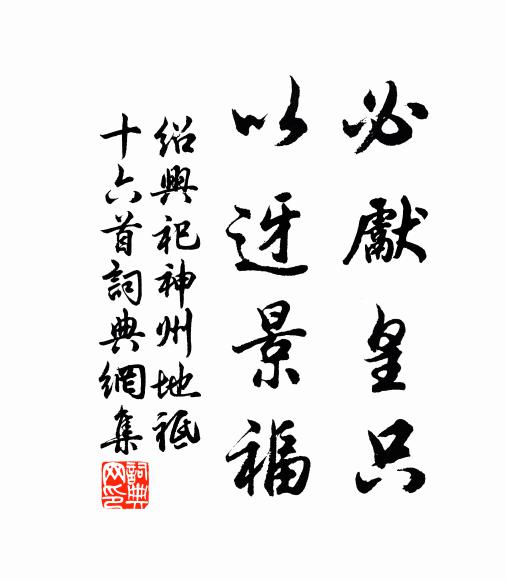 必獻皇只
以迓景福
紹興祀神州地祗
十六首詞典網集
詞典
网印